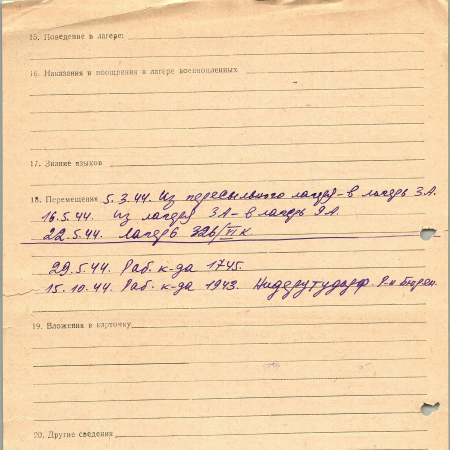 15. Поведение в лагере:
16. Наказания и поощрения в лагере военнопленных
17. Знание языков
18. Перемещения 5.3.44. Из пересыльного лагеря - в лагерь 3А.
16.5.44. Из лагеря 3А - в лагерь 9А.
22.5.44. лагерь 326/VI К.
29.5.44. Раб. к-да 1745.
15.10.44. Раб. к-да 1943. р-н
19. Вложения в карточку
20. Другие сведения